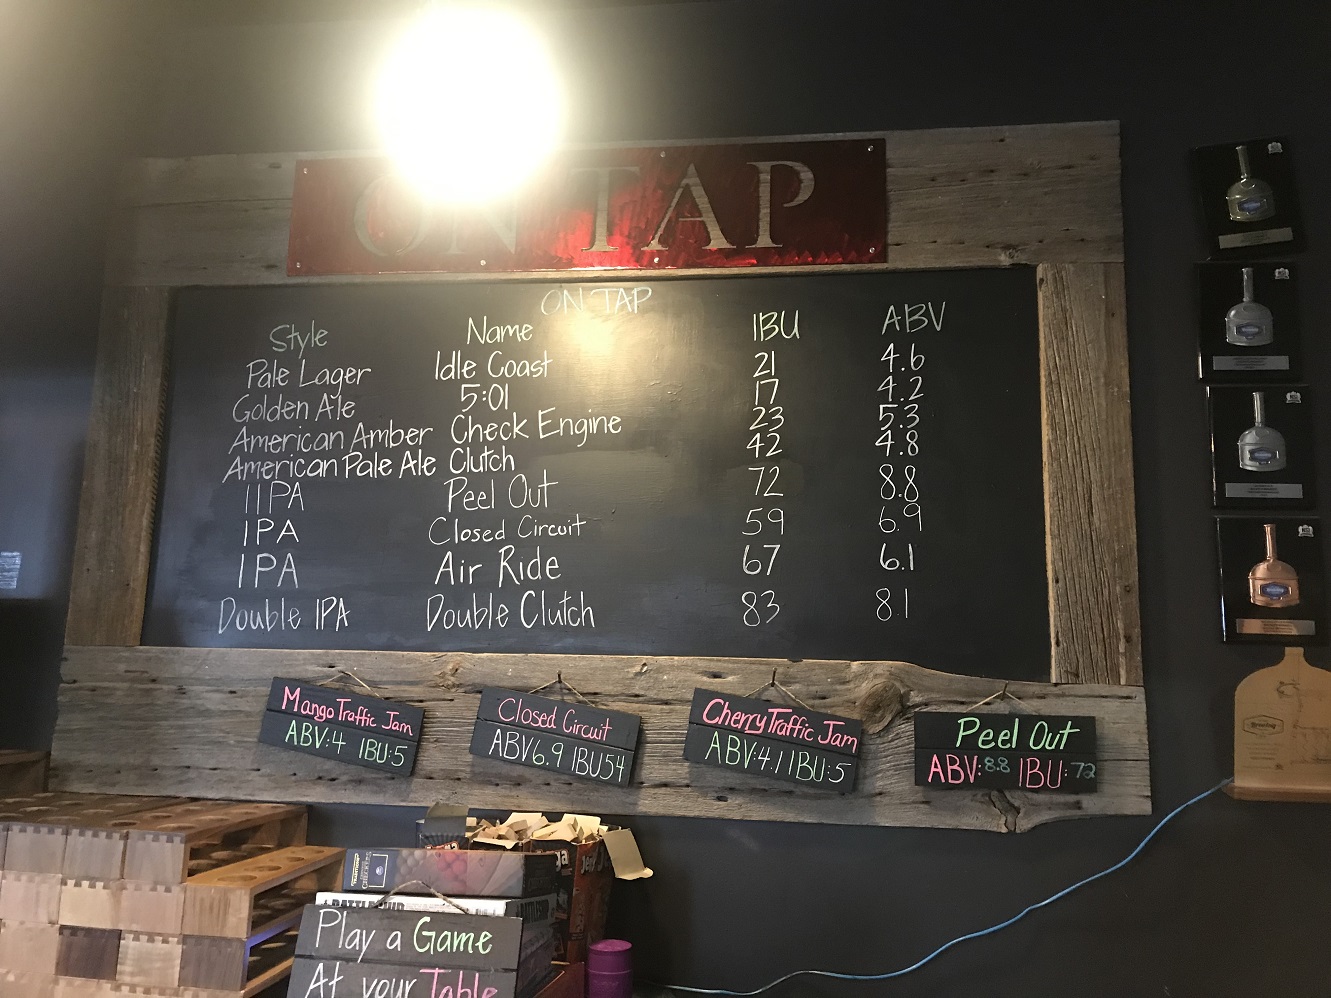 ON TAP
ON TAP
Style Name IBU ABV
Pale Lager Idle Coast 21 4.6
Golden Ale 5:01 17 4.2
American Amber Check Engine 23 5.3
American Pale Ale Clutch 42 4.8
IIPA Peel Out 72 8.8
IPA Closed Circuit 59 6.9
IPA Air Ride 67 6.1
Double IPA Double Clutch 83 8.1
Mango Traffic Jam
ABV:4 IBU:5
Closed Circuit
ABV6.9 IBU54
Cherry Traffic Jam
ABV:4.1 IBU:5
Peel Out
ABV:8.8 IBU:72
BATTLESHIP
Play a Game
At your Table